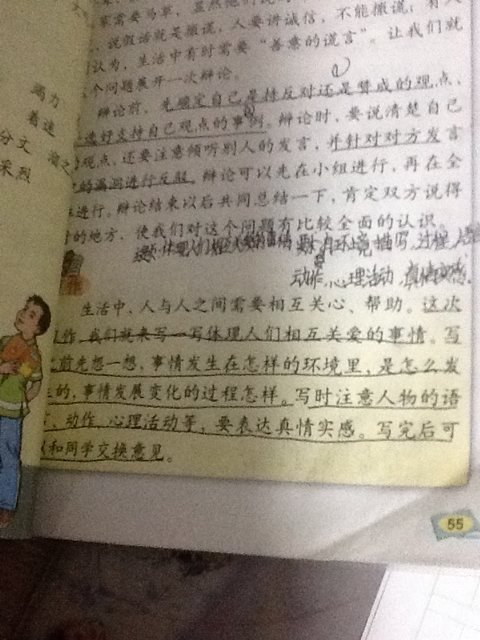 说假话就是撒谎，人要讲诚信，不能撒谎；有人
认为，生活中有时需要“善意的谎言”。让我们就
个问题展开一次辩论。
辩论前，先确定自己是持反对还是赞成的观点，
选好支持自己观点的事例。辩论时，要说清楚自己
观点，还要注意倾听别人的发言，并针对对方发言
的漏洞进行反驳。辩论可以先在小组进行，再在全
进行。辩论结束以后共同总结一下，肯定双方说得
的地方，使我们对这个问题有比较全面的认识。
环境描写，过程
动作，心理活动，真情实感。
生活中，人与人之间需要相互关心、帮助。这次
作，我们就来写一写体现人们相互关爱的事情。写
之前先想一想，事情发生在怎样的环境里，是怎么发
生的，事情发展变化的过程怎样。写时注意人物的语
、动作、心理活动等，要表达真情实感。写完后可
以和同学交换意见。
竭力
着迷
分文
采烈
55